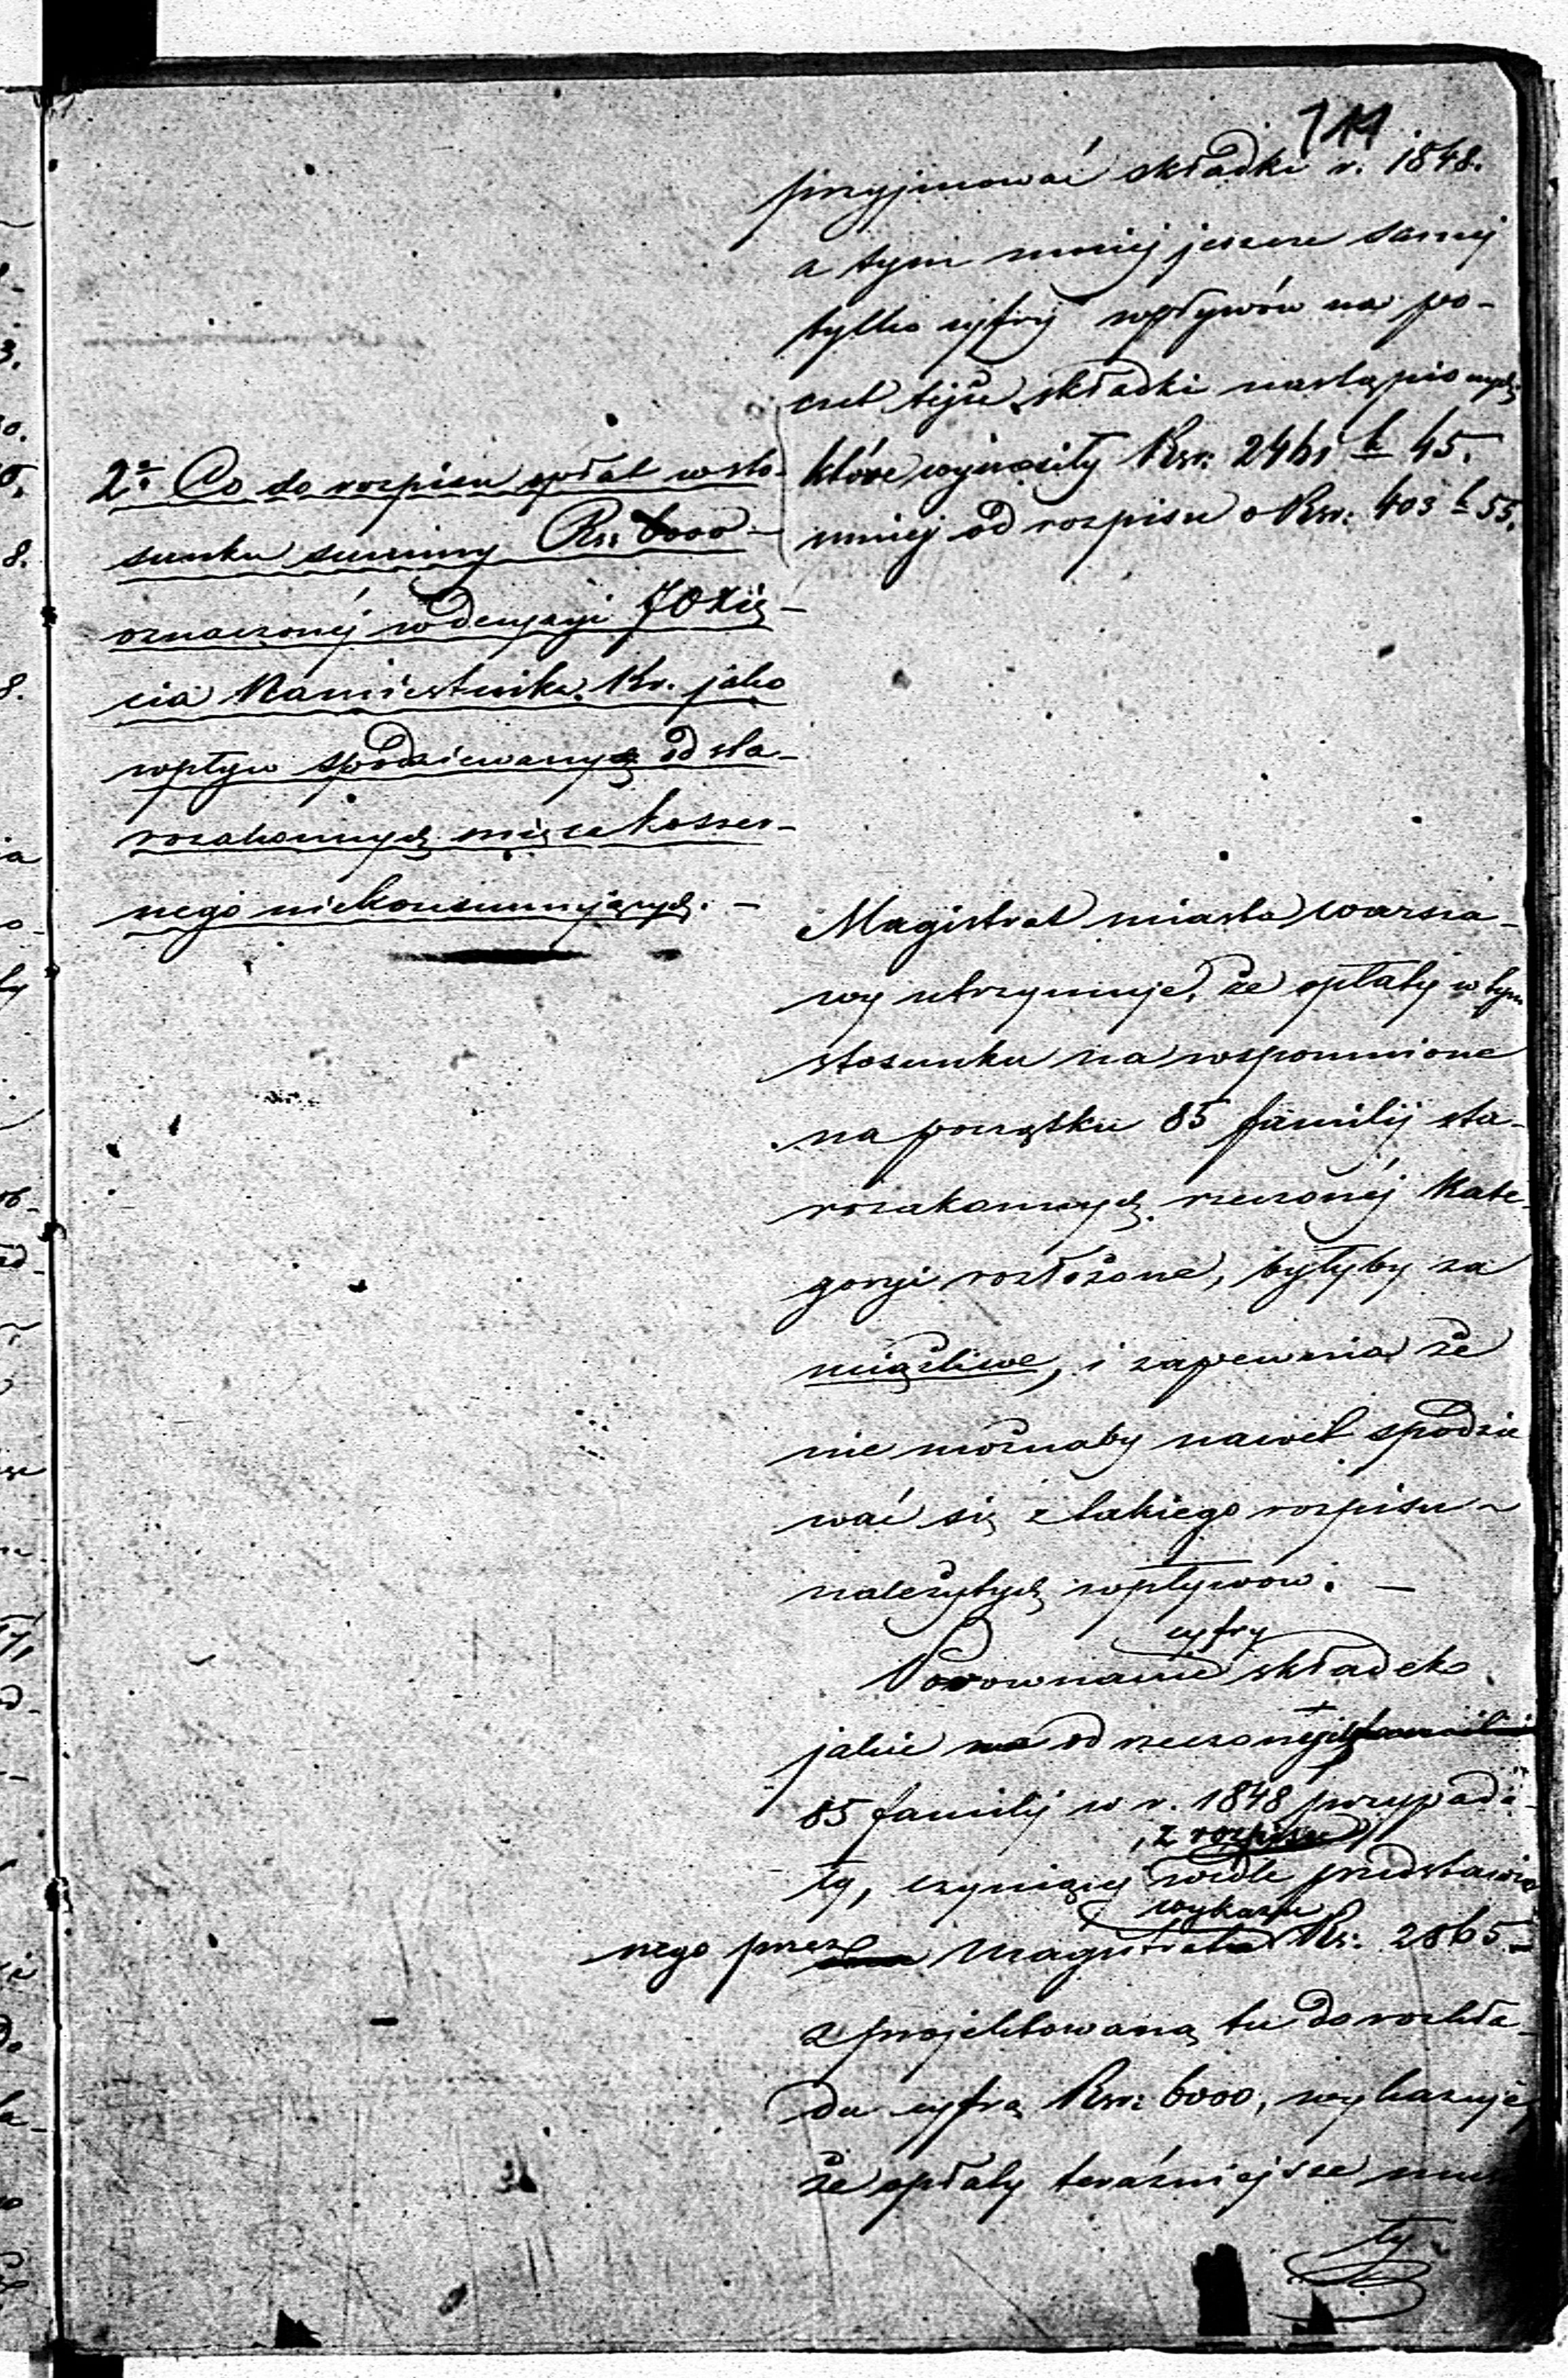 711
przyjmować składki r. 1848.
a tym mniej jeszcze samej
tylko cyfry wpływów na po-
czet tejże składki nastąpionych
które wynosiły Rsr: 2461 k 45.
mniej od rozpisu o Rsr: 403 k 55.
2º Co do rozpisu opłat w sto-
sunku summy Rsr 6000 -
oznaczonéj w decyzyi JO Xię-
cia Namiestnika Kr. jako
wpływ spodziewany od sta-
rozakonnych mięsa koszer-
nego niekonsumujących. -
Magistrat miasta Warsza-
wy utrzymuje, że opłaty w tym
stosunku na wspomnione
na początku 85 familij sta-
rozakonnych rzeczonéj kate-
goryi rozłożone, byłyby za
uciążliwe, i zapewnia że
nie możnaby nawet spodzie
wać się z takiego rozpisu
należytych wpływow. -
cyfry
Porownanie składek
jakie na od rzeczonych familii
85 familij w r. 1848 przypada-
z rozpisu
ły, czyniącej wedle przedstawio
wykazu
nego przez Magistrat Rs. 2865 -
z projektowaną tu do rozkła-
du cyfrą Rsr: 6000, wykazuje
że opłaty teraźniejsze mus
ły